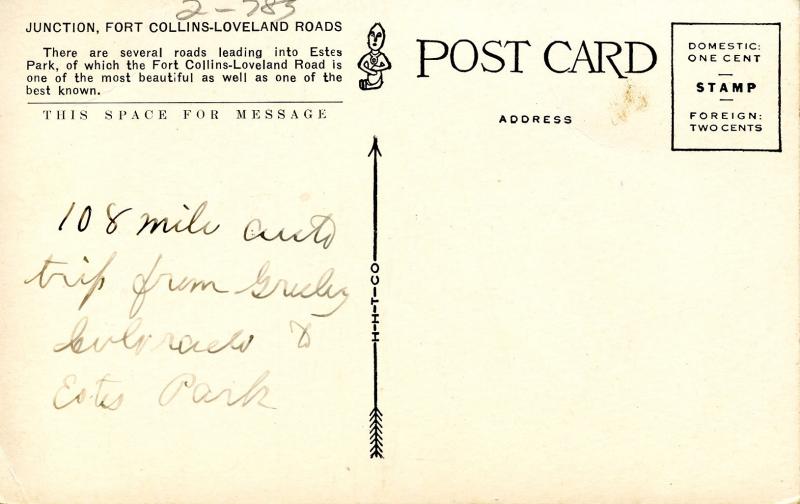 2-785
JUNCTION, FORT COLLINS-LOVELAND ROADS
There are several roads leading into Estes
Park, of which the Fort Collins-Loveland Road is
one of the most beautiful as well as one of the
best known.
THIS SPACE FOR MESSAGE
108 mile auto
trip from Greeley
Colorado to
Estes Park
H-H-T-CO
POST CARD
ADDRESS
DOMESTIC:
ONE CENT
STAMP
FOREIGN:
TWO CENTS